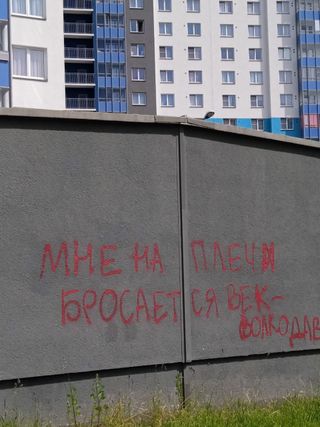 МНЕ НА ПЛЕЧИ
БРОСАЕТСЯ ВЕК-
ВОЛКОДАВ